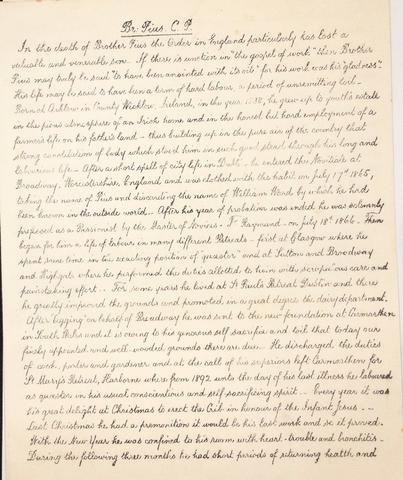 Br: Pius. C. P.
In the death of Brother Pius the Order in England particularly has lost a
valuable and venerable son. If there is unction in "the gospel of work" then Brother
Pius may truly be said "to have been anointed with its oil" for his work was his "gladness".
His life may be said to have been a term of hard labour, a period of unremitting toil–
Born at Arklow in County Wicklow, Ireland, in the year 1838, he grew up to youth's estate
in the pious atmosphere of an Irish home and in the honest but hard employment of a
farmer's life on his father's land – thus building up in the pure air of the country that
strong constitution of body which stood him in such good stead through his long and
laborious life – After a short spell of city life in he entered the Novitiate at
Broadway, Worcestershire, England and was clothed with the habit on July 17th 1865,
taking the name of Pius and discarding the name of William Ward by which he had
been known in the outside world – After his year of probation was ended he was solemnly
professed as a Passionist by the Master of Novices. Fr Raymond – on July 18th 1866 – Then
began for him a life of labour in many different Retreats – first at Glasgow where he
spent some time in the exacting position of "questor" and at Sutton and Broadway
and Highgate where he performed the duties allotted to him with scrupulous care and
painstaking effort – For some years he lived at St Paul's Retreat Dublin and there
he greatly improved the grounds and promoted in a great degree the dairy department.
After "begging" on behalf of Broadway he was sent to the new foundation at Carmarthen
in South Wales and it is owing to his generous self sacrifice and toil that today our
finely appointed and well-wooded grounds there are due – He discharged the duties
of cook, porter and gardener and at the call of his superiors left Carmarthen for
St Mary's Retreat, Harborne where from 1892 unto the day of his last illness he laboured
as questor in his usual conscientious and self sacrificing spirit – Every year it was
his great delight at Christmas to erect the Crib in honour of the Infant Jesus –
Last Christmas he had a premonition it would be his last work and so it proved.
With the New Year he was confined to his room with heart-trouble and bronchitis –
During the following three months he had short periods of returning health and